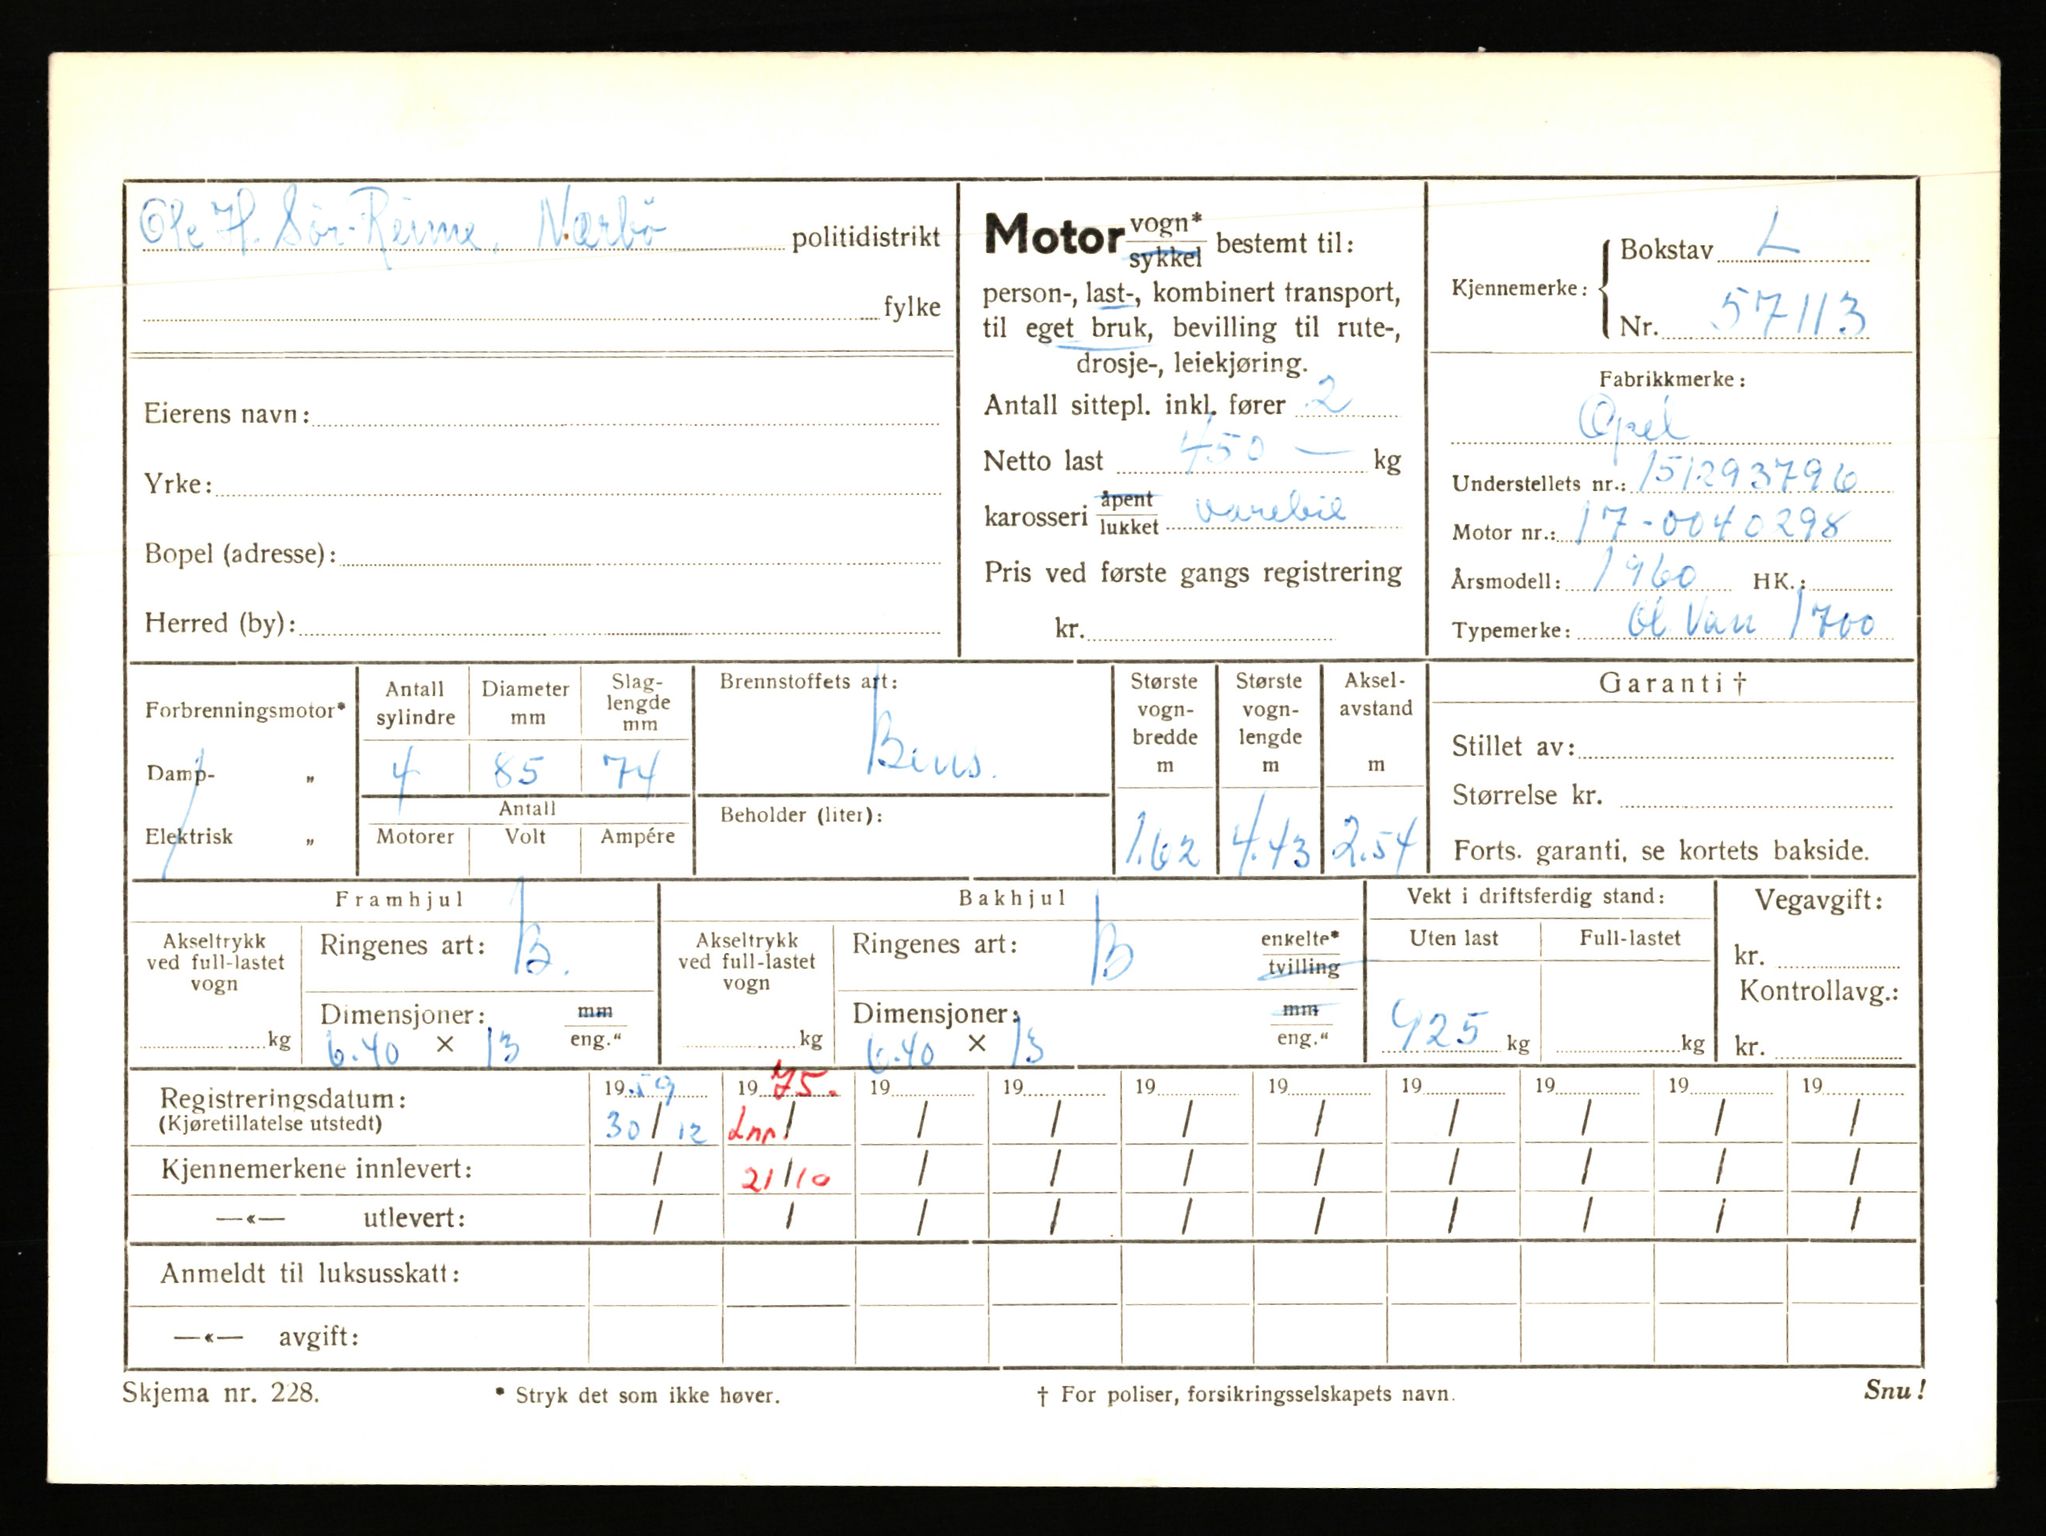 Ole H. Sör-Reime, Nærbö politidistrikt
fylke
Eierens navn:
Yrke:
Bopel (adresse):
Herred (by):
Motor vogn* sykkel bestemt til:
person-, last-, kombinert transport,
til eget bruk, bevilling til rute-,
drosje-, leiekjøring.
Antall sittepl. inkl. fører 2
Netto last 450 — kg
karosseri åpent lukket varebil
Pris ved første gangs registrering
kr.
Kjennemerke: Bokstav L
Nr. 57113
Fabrikkmerke:
Opel
Understellets nr.: 151293796
Motor nr.: 17-0040298
Årsmodell: 1960 HK.:
Typemerke: Ol Van 1700
Forbrenningsmotor*
Damp- „
Elektrisk „
Antall sylindre 4
Diameter mm 85
Slaglengde mm 74
Antall
Motorer Volt Ampére
Brennstoffets art:
Bens.
Beholder (liter):
Største vognbredde m 1.62
Største vognlengde m 4.43
Akselavstand m 2.54
Garanti †
Stillet av:
Størrelse kr.
Forts. garanti, se kortets bakside.
Framhjul
Akseltrykk ved full-lastet vogn kg
Ringenes art: B.
Dimensjoner: mm eng."
6.40 × 13
Bakhjul
Akseltrykk ved full-lastet vogn kg
Ringenes art: B enkelte* tvilling
Dimensjoner: mm eng."
6.40 × 13
Vekt i driftsferdig stand:
Uten last Full-lastet
925 kg kg
Vegavgift:
kr.
Kontrollavg.:
kr.
Registreringsdatum: 19 59 19 75. 19 19 19 19 19 19 19 19
(Kjøretillatelse utstedt) 30 / 12 Lnr / / / / / / / / /
Kjennemerkene innlevert: / 21/10 / / / / / / / /
—«— utlevert: / / / / / / / / / /
Anmeldt til luksusskatt:
—«— avgift:
Skjema nr. 228. * Stryk det som ikke høver. † For poliser, forsikringsselskapets navn. Snu!